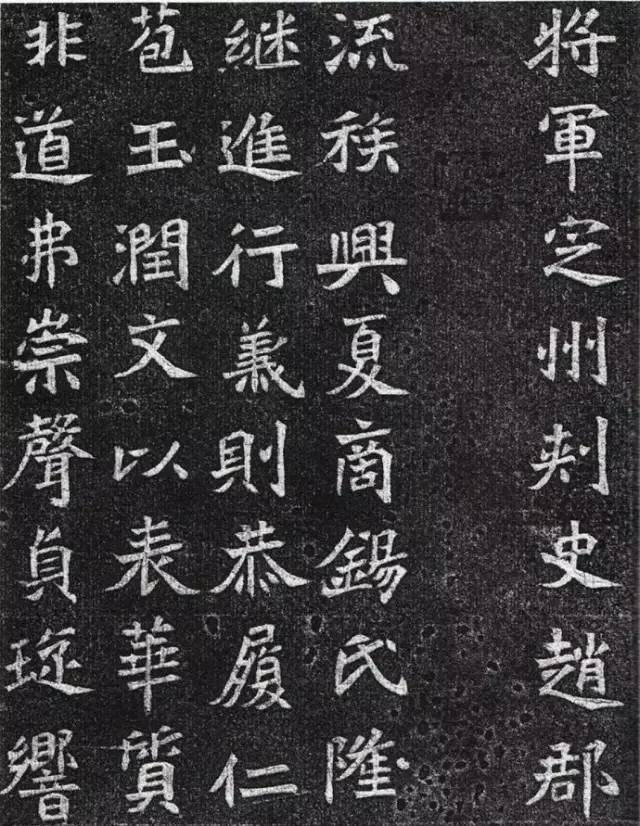 將軍定州刺史趙郡
流稚興夏商錫氏隆
継進行義則恭履仁
苞玉潤文以表華質
非道弗崇聲貞琁響